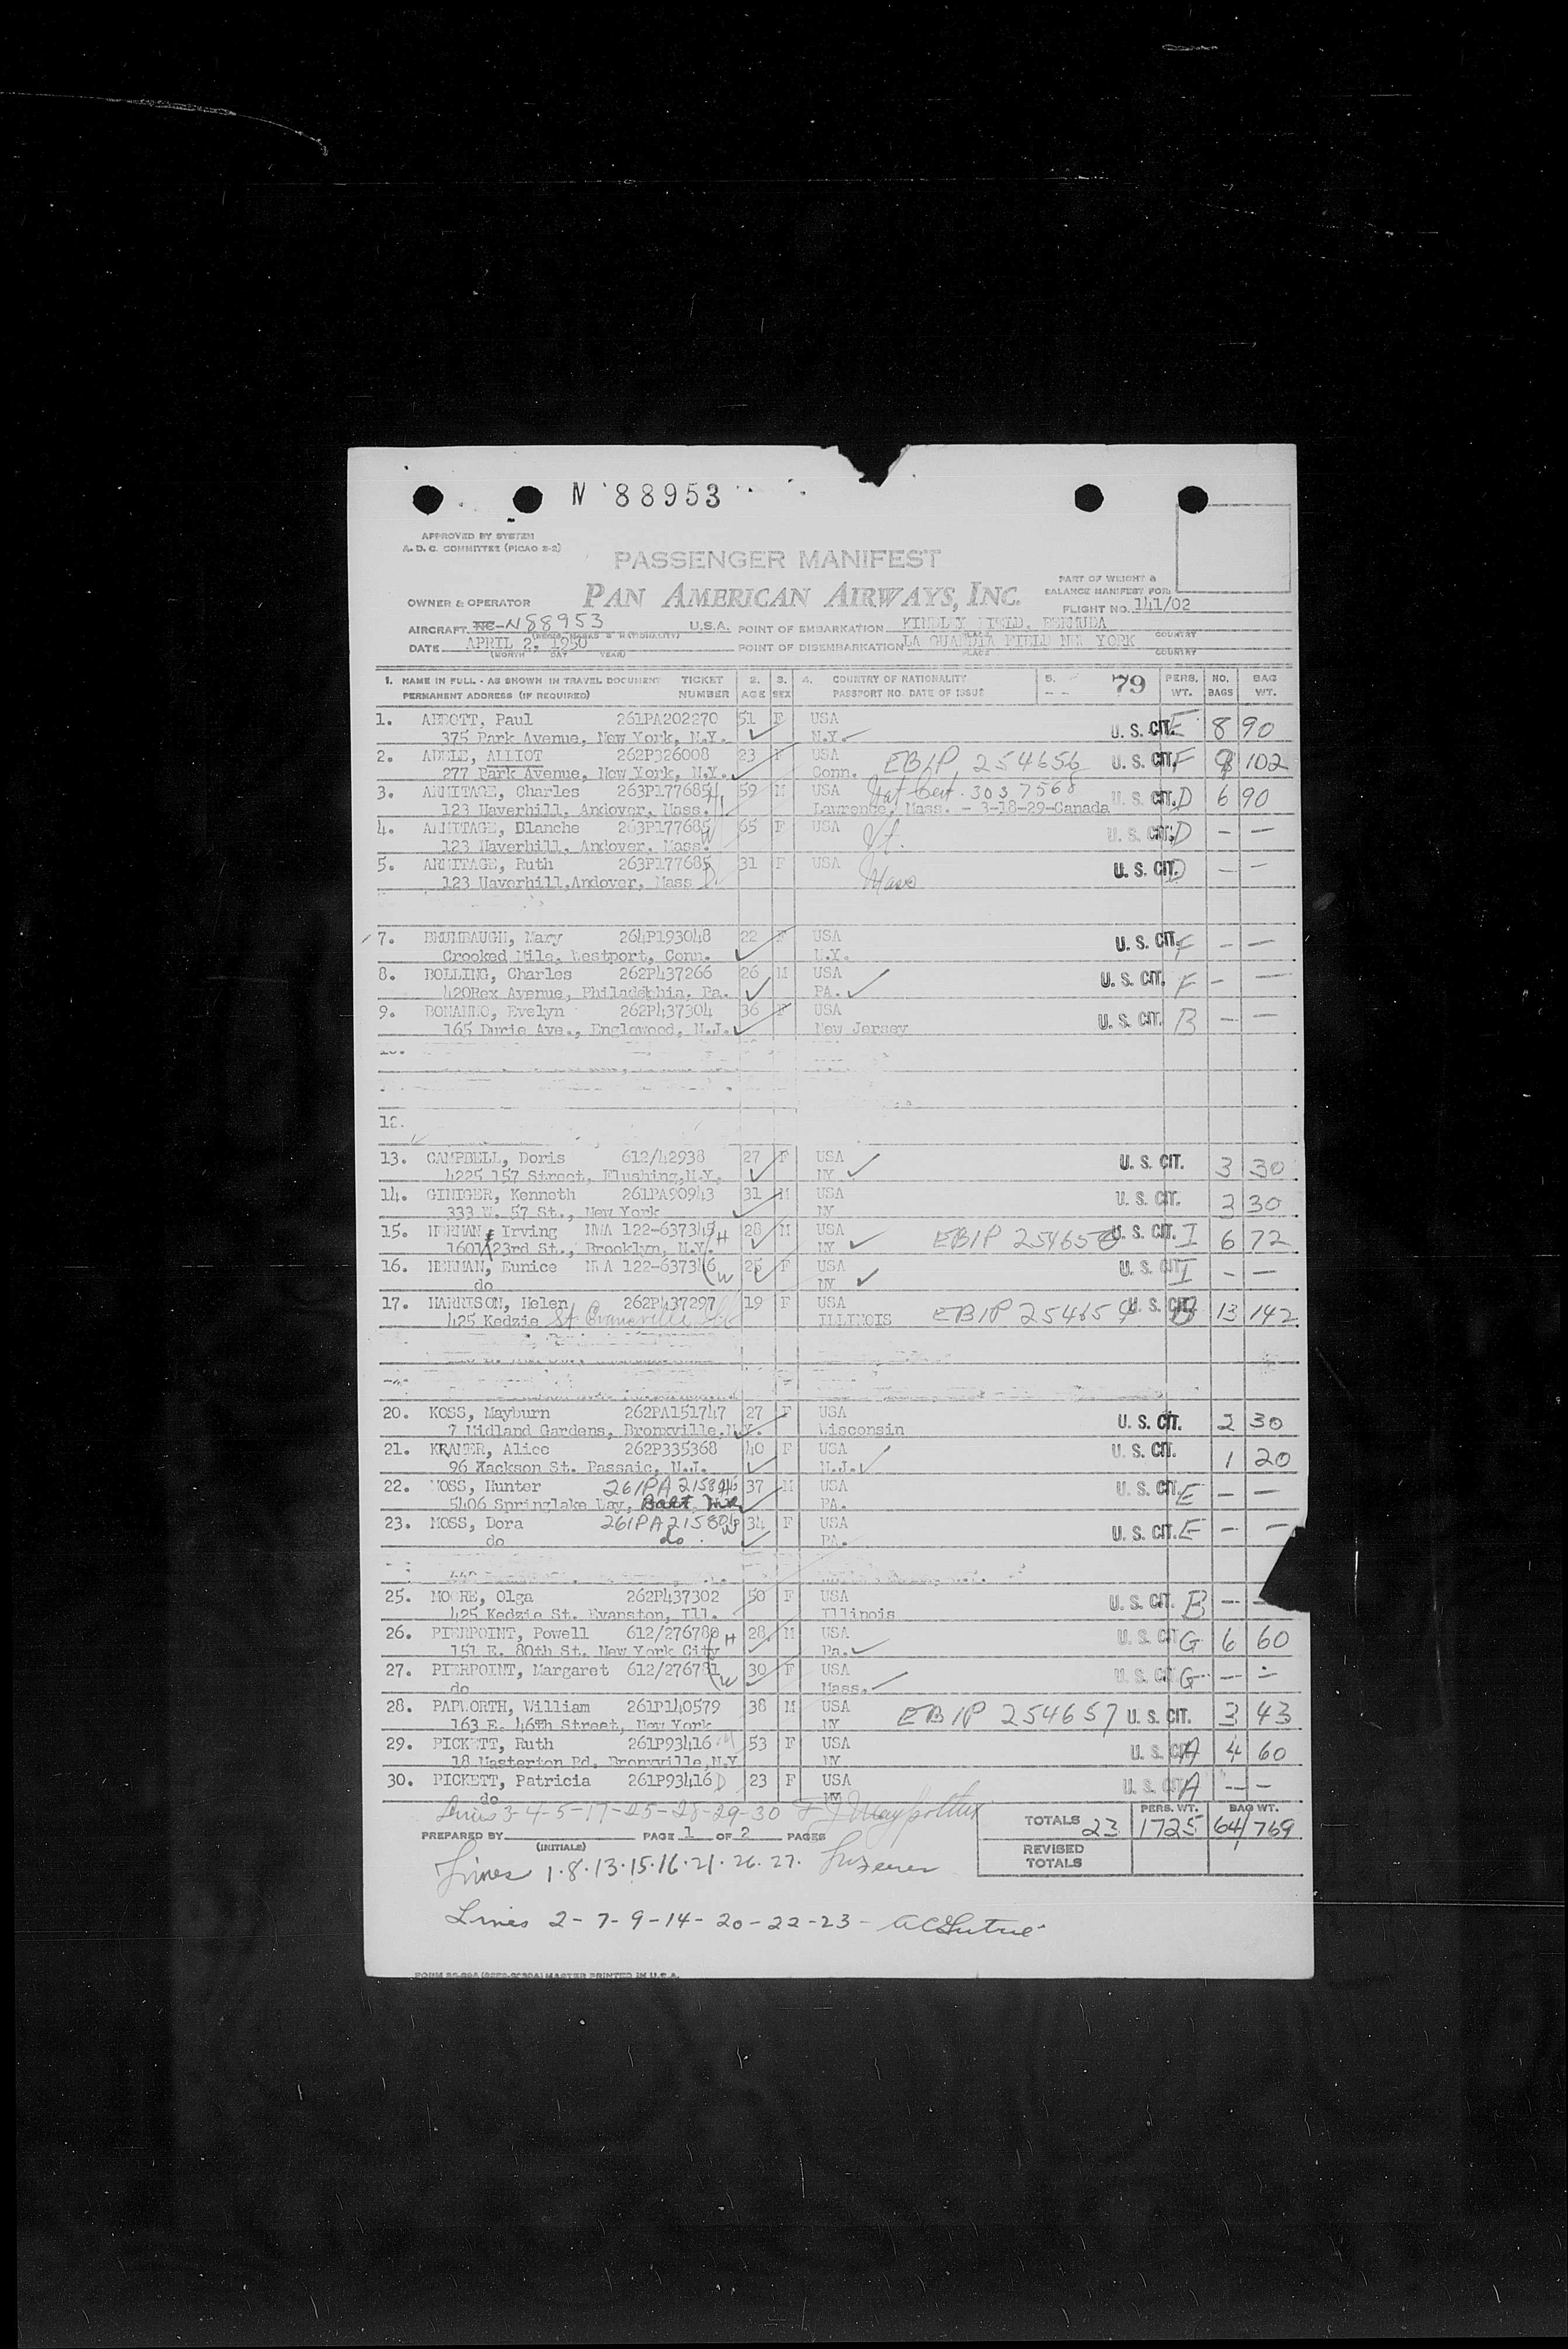 N 88953
APPROVED BY SYSTEM
A. D. C. COMMITTEE (PICAO 2-2)
PASSENGER MANIFEST
PART OF WEIGHT &
BALANCE MANIFEST FOR:
OWNER & OPERATOR PAN AMERICAN AIRWAYS, INC.
FLIGHT NO. 141/02
AIRCRAFT NC-N88953 U.S.A. POINT OF EMBARKATION KINDLEY FIELD, BERMUDA
DATE APRIL 2, 1950 POINT OF DISEMBARKATION LA GUARDIA FIELD NEW YORK COUNTRY
(MONTH DAY YEAR) PLACE COUNTRY
1. NAME IN FULL - AS SHOWN IN TRAVEL DOCUMENT TICKET 2. 3. 4. COUNTRY OF NATIONALITY 5. 79 PERS. NO. BAG
PERMANENT ADDRESS (IF REQUIRED) NUMBER AGE SEX PASSPORT NO. DATE OF ISSUE WT. BAGS WT.
1. ABBOTT, Paul 261PA202270 51 F USA U. S. CIT. E 8 90
375 Park Avenue, New York, N.Y. N.Y.
2. ADELE, ALLIOT 262P326008 23 F USA EBIP 254656 U. S. CIT. F 9 102
277 Park Avenue, New York, N.Y. Conn.
3. ARMITAGE, Charles 263P177685 H 59 M USA Nat Cert. 3037568 U. S. CIT. D 6 90
123 Haverhill, Andover, Mass. Lawrence, Mass. - 3-18-29-Canada
4. ARMITAGE, Blanche 263P177685 W 65 F USA Vt. U. S. CIT. D — —
123 Haverhill, Andover, Mass.
5. ARMITAGE, Ruth 263P177685 D 31 F USA Mass U. S. CIT. D — —
123 Haverhill,Andover, Mass
7. BRUMBAUGH, Mary 264P193048 22 F USA U. S. CIT. F — —
Crooked Mile, Westport, Conn. N.Y.
8. BOLLING, Charles 262P437266 26 M USA U. S. CIT. F — —
420Rex Avenue, Philadelphia, Pa. PA.
9. BONANNO, Evelyn 262P437304 36 F USA U. S. CIT. B — —
165 Durie Ave., Englewood, N.J. New Jersey
12.
13. CAMPBELL, Doris 612/42938 27 F USA U. S. CIT. 3 30
4225 157 Street, Flushing,N.Y. NY
14. GINIGER, Kenneth 261PA90943 31 M USA U. S. CIT. 2 30
333 W. 57 St., New York NY
15. HERMAN, Irving NWA 122-637345 H 28 M USA EBIP 254658 U. S. CIT. I 6 72
1601 23rd St., Brooklyn, N.Y. NY
16. HERMAN, Eunice NWA 122-637346 W 25 F USA U. S. CIT. I — —
do NY
17. HARRISON, Helen 262P437297 19 F USA EBIP 254659 U. S. CIT. B 13 142
425 Kedzie St. Evansville Ill ILLINOIS
20. KOSS, Mayburn 262PA151747 27 F USA U. S. CIT. 2 30
7 Midland Gardens, Bronxville,N.Y. Wisconsin
21. KRAMER, Alice 262P335368 40 F USA U. S. CIT. 1 20
96 Xackson St. Passaic, N.J. N.J.
22. MOSS, Hunter 261PA 215804 37 M USA U. S. CIT. E — —
5406 Springlake Way, PA.
23. MOSS, Dora 261PA 215804 34 F USA U. S. CIT. E — —
do do. PA.
25. MOORE, Olga 262P437302 50 F USA U. S. CIT. B —
425 Kedzie St. Evanston, Ill. Illinois
26. PIERPOINT, Powell 612/276780 H 28 M USA U. S. CIT G 6 60
151 E. 80th St. New York City Pa.
27. PIERPOINT, Margaret 612/276781 W 30 F USA U. S. CIT G — —
do Mass.
28. PAPWORTH, William 261P140579 38 M USA EBIP 254657 U. S. CIT. 3 43
163 E. 46Th Street, New York NY
29. PICKETT, Ruth 261P93416 M 53 F USA U. S. CIT A 4 60
18 Masterton Rd. Bronxville,N.Y NY
30. PICKETT, Patricia 261P93416 D 23 F USA U. S. CIT A — —
do NY
Lines 3-4-5-17-25-28-29-30
TOTALS 23 PERS. WT. 1725 64 BAG WT. 769
PREPARED BY (INITIALS) PAGE 1 OF 2 PAGES
REVISED TOTALS
Lines 1.8.13.15.16.21.26.27.
Lines 2-7-9-14-20-22-23-